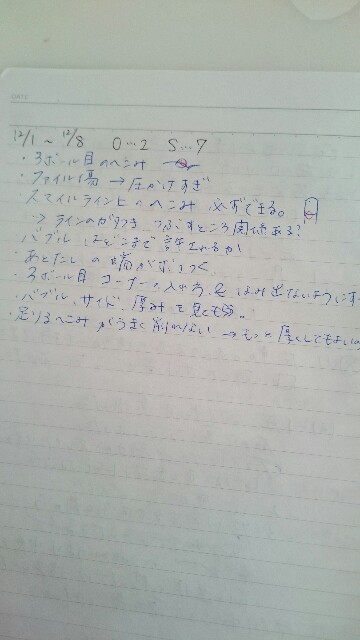 12/1 ~ 12/8 O…2 S…7
・3ボール目のへこみ
・ファイル傷 → 圧かけすぎ
スマイルライン上のへこみ 必ずできる。
→ラインのガタつき つぶすところ関係ある?
バブルはどこまで許されるか
あとたしの端がボコつく
・3ボール目 コーナーの入
・バブル、サイド、厚み を見ても
・足りるへこみがうまく削れない → もっと厚くしてもよい